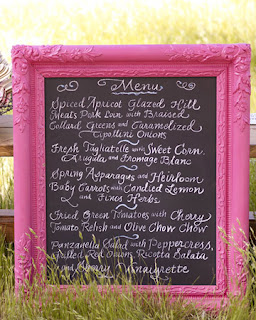 Menu
Spiced Apricot Glazed Hill
Meats Pork Loin with Braised
Collard Greens and Caramelized
Cipollini Onions
Fresh Tagliatelle with Sweet Corn,
Arugula and Fromage Blanc
Spring Asparagus and Heirloom
Baby Carrots with Candied Lemon
and Fines Herbs
Fried Green Tomatoes with Cherry
Tomato Relish and Olive Chow Chow
Panzanella Salad with Peppercress,
Grilled Red Onions, Ricotta Salata
and Vinaigrette